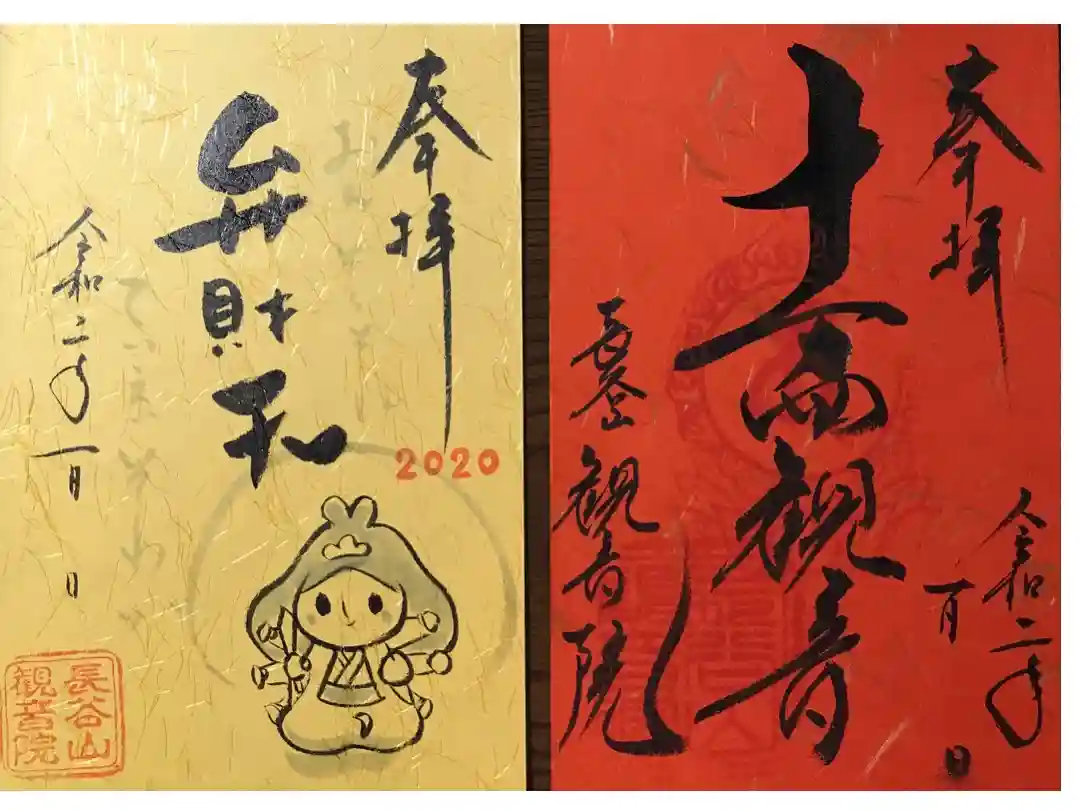 奉拝
令和二年
一月 日
十一面観音
長谷山 観音院
奉拝
2020
弁財
令和二年一月 日
長谷山
観音院